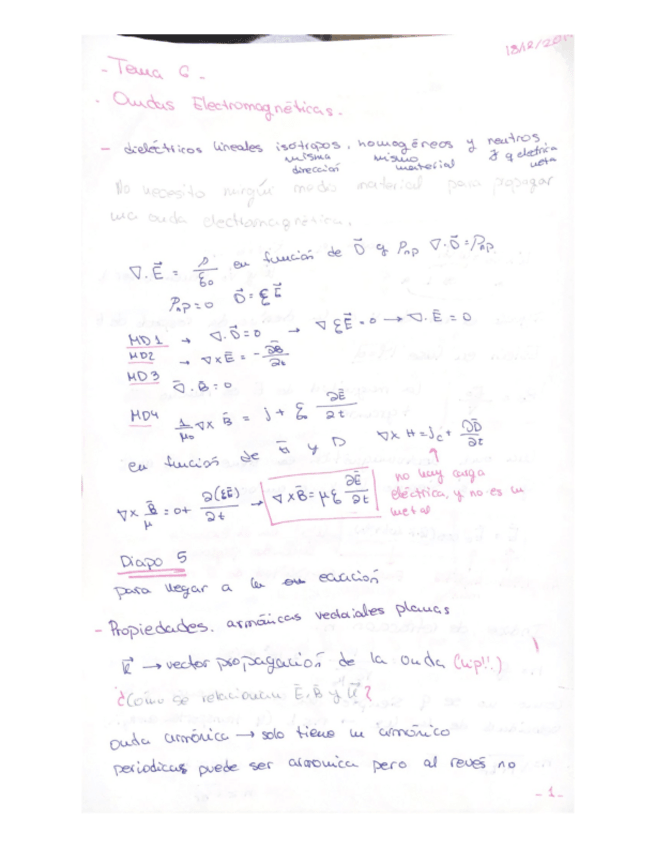 18/12/20
- Tema 6 -
· Ondas Electromagnéticas.
- dieléctricos lineales isotropos, homogéneos y neutros
misma dirección
mismo material
q eléctrica neta
No necesito ningún medio material para propagar
una onda electromagnética.
∇·E⃗ = ρ/ξ₀ en función de D⃗ y ρnp ∇·D⃗=ρnp
ρnp=0 D⃗=ξE⃗
MD1 → ∇·D⃗=0 → ∇ξE⃗=0 → ∇·E=0
MD2 → ∇×E = -∂B/∂t
MD3 ∇·B=0
MD4 1/μ₀ ∇× B = j + ξ₀ ∂E/∂t
en función de H y D ∇× H=jc+ ∂D/∂t
∇× B/μ = 0+ ∂(ξE)/∂t → ∇×B=μξ ∂E/∂t
no hay carga
eléctrica, y no es un
metal
Diapo 5
para llegar a la ecuación
- Propiedades. armónicas vectoriales planas
K⃗ → vector propagación de la onda (vip!!)
¿Cómo se relacionan E, B y K⃗?
onda armónica → solo tiene un armónico
periodicas puede ser armonica pero al revés no
-1-